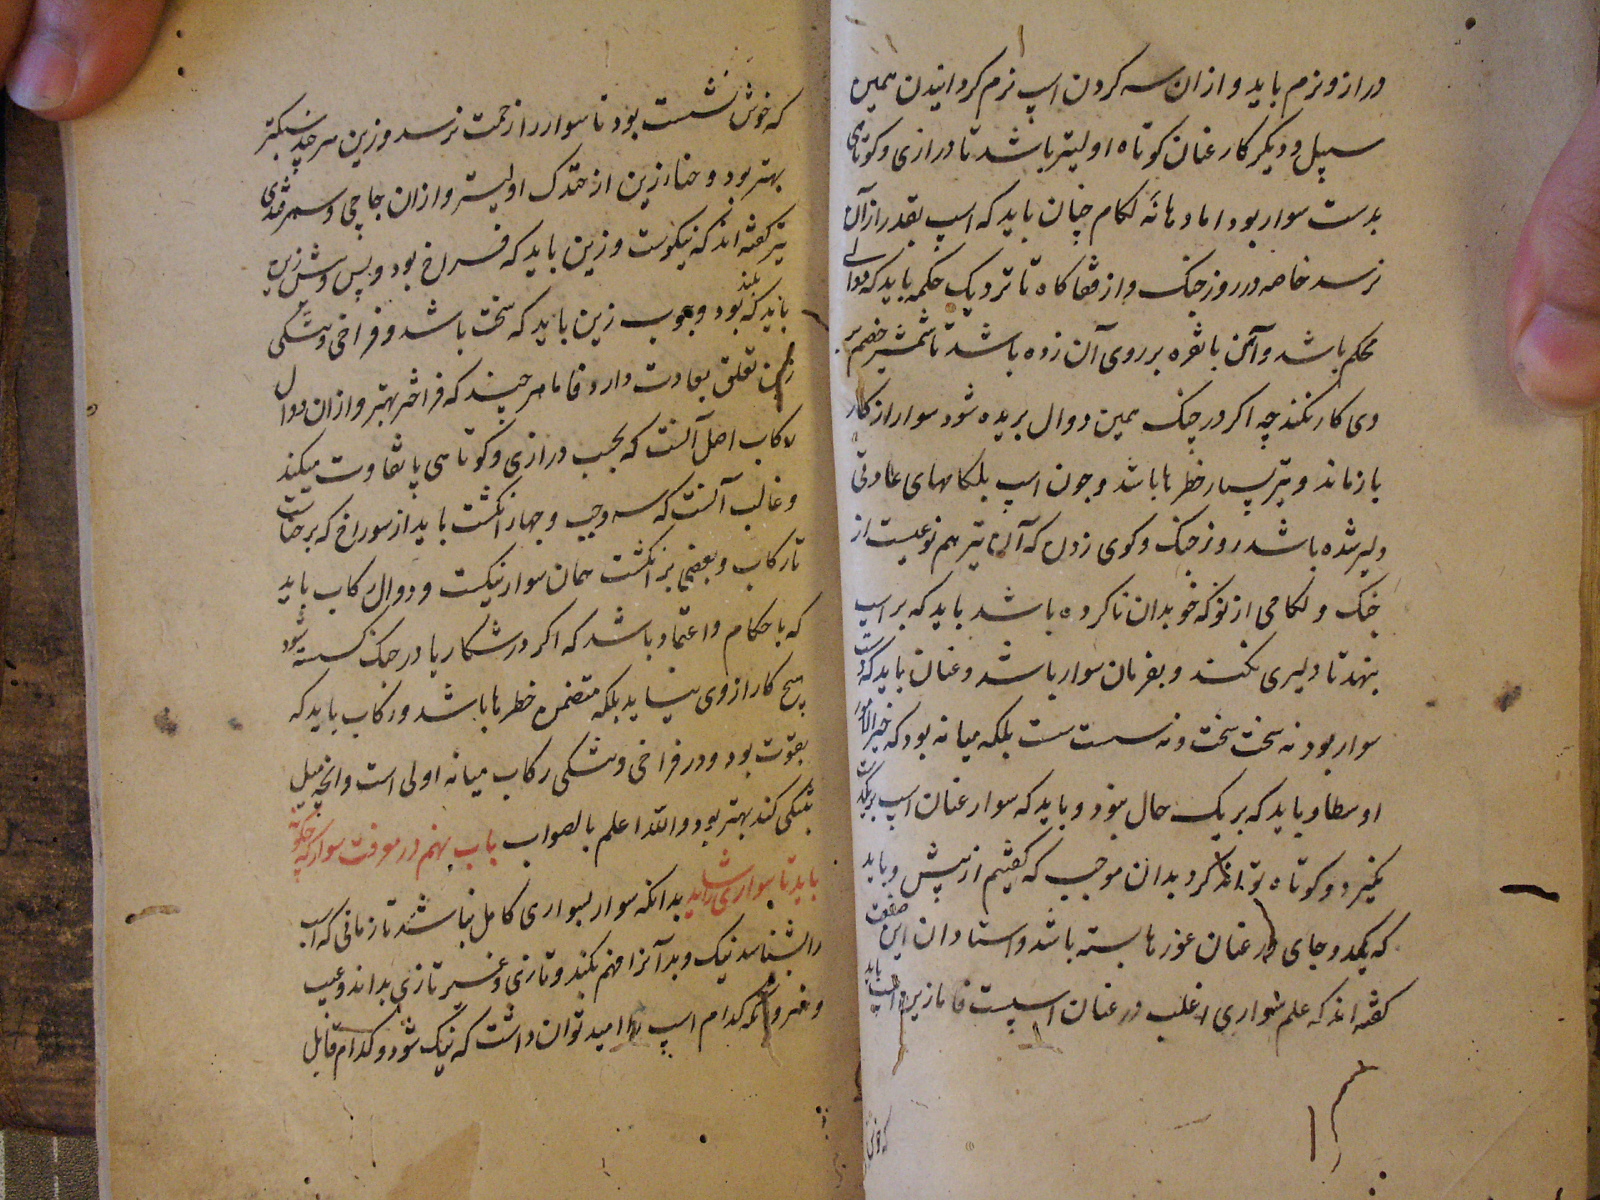 دراز و نرم باید و ازان سه کردن اسپ نرم کردانیدن همین
سپیل و دیکر کار عنان کوتاه اولیتر باشد تا درازی و کوتاهی
بدست سوار بود اما دهانه لکام چنان باید که اسپ بقدر ازان
نرسد خاصه در روز جنک و از قفا کاه تا نزدیک حکمه باید که دوالی
محکم باشد و آهن یا نقره بر روی آن زده باشد تا شمشیر خصم بر
وی کار نکند چه اکر در جنک همین دوال بریده شود سوار از کار
باز ماند و نیز بسیار خطرها باشد و چون اسپ بلکامهای عادتی
دلیر شده باشد روز جنک و کوی زدن که آن نیز هم نوعیست از
جنک و لکامی از نو که خو بدان ناکرده باشد باید که بر اسپ
بنهد تا دلیری نکند و بفرمان سوار باشد و عنان باید که
سوار بود نه سخت سخت و نه سست سست بلکه میانه بود که خیر الامور
اوسطها و باید که بر یک حال بود و باید که سوار عنان اسپ
بگیرد و کوتاه تواند کرد بدان موجب که کفتیم از پیش و باید
که یکدو جای در عنان عوزها بسته باشد و استادان این صفت
کفته اند که علم سواری اغلب در عنان اسپست فاما زین اسپ باید
که خوش
که خوش نشست بود تا سوار را زحمت نرسد و زین هر چند سبکتر
بهتر بود و حنا زین از خدنک اولیتر و ازان چاچی و سمرقندی
نیز کفته اند که نیکوست و زین باید که فراخ بود و پس و پیش زین
باید که بلند بود و چوب زین باید که سخت باشد و فراخی و تنکی
زین تعلق بعادت دارد فاما هر چند که فراختر بهتر و ازان دوال
رکاب اصل آنست که بحسب درازی و کوتاهی پا تفاوت میکند
و غالب آنست که سه وجب و چهار انکشت باید از سوراخ که بر
تا رکاب و بعضی بر انکشت همان سوار نیکست و دوال رکاب باید
که با حکام و اعتماد باشد که اکر در شکار یا در جنک کسسته شود
هیچ کار از وی نیاید بلکه متضمن خطرها باشد و رکاب باید که
بقوت بود و در فراخی و تنکی رکاب میانه اولی است و انچه میل
بتنکی کند بهتر بود والله اعلم بالصواب باب نهم در معرفت سوار که چکونه
باید تا سواری را شاید بدانکه سوار بسواری کامل نباشد تا زمانی که اسپ
را بشناسد نیک و بد آنرا فهم بکند و تازی و غیر تازی بداند و عیب
و هنر و آنکه کدام اسپ را امید توان داشت که نیک شود و کدام قابل